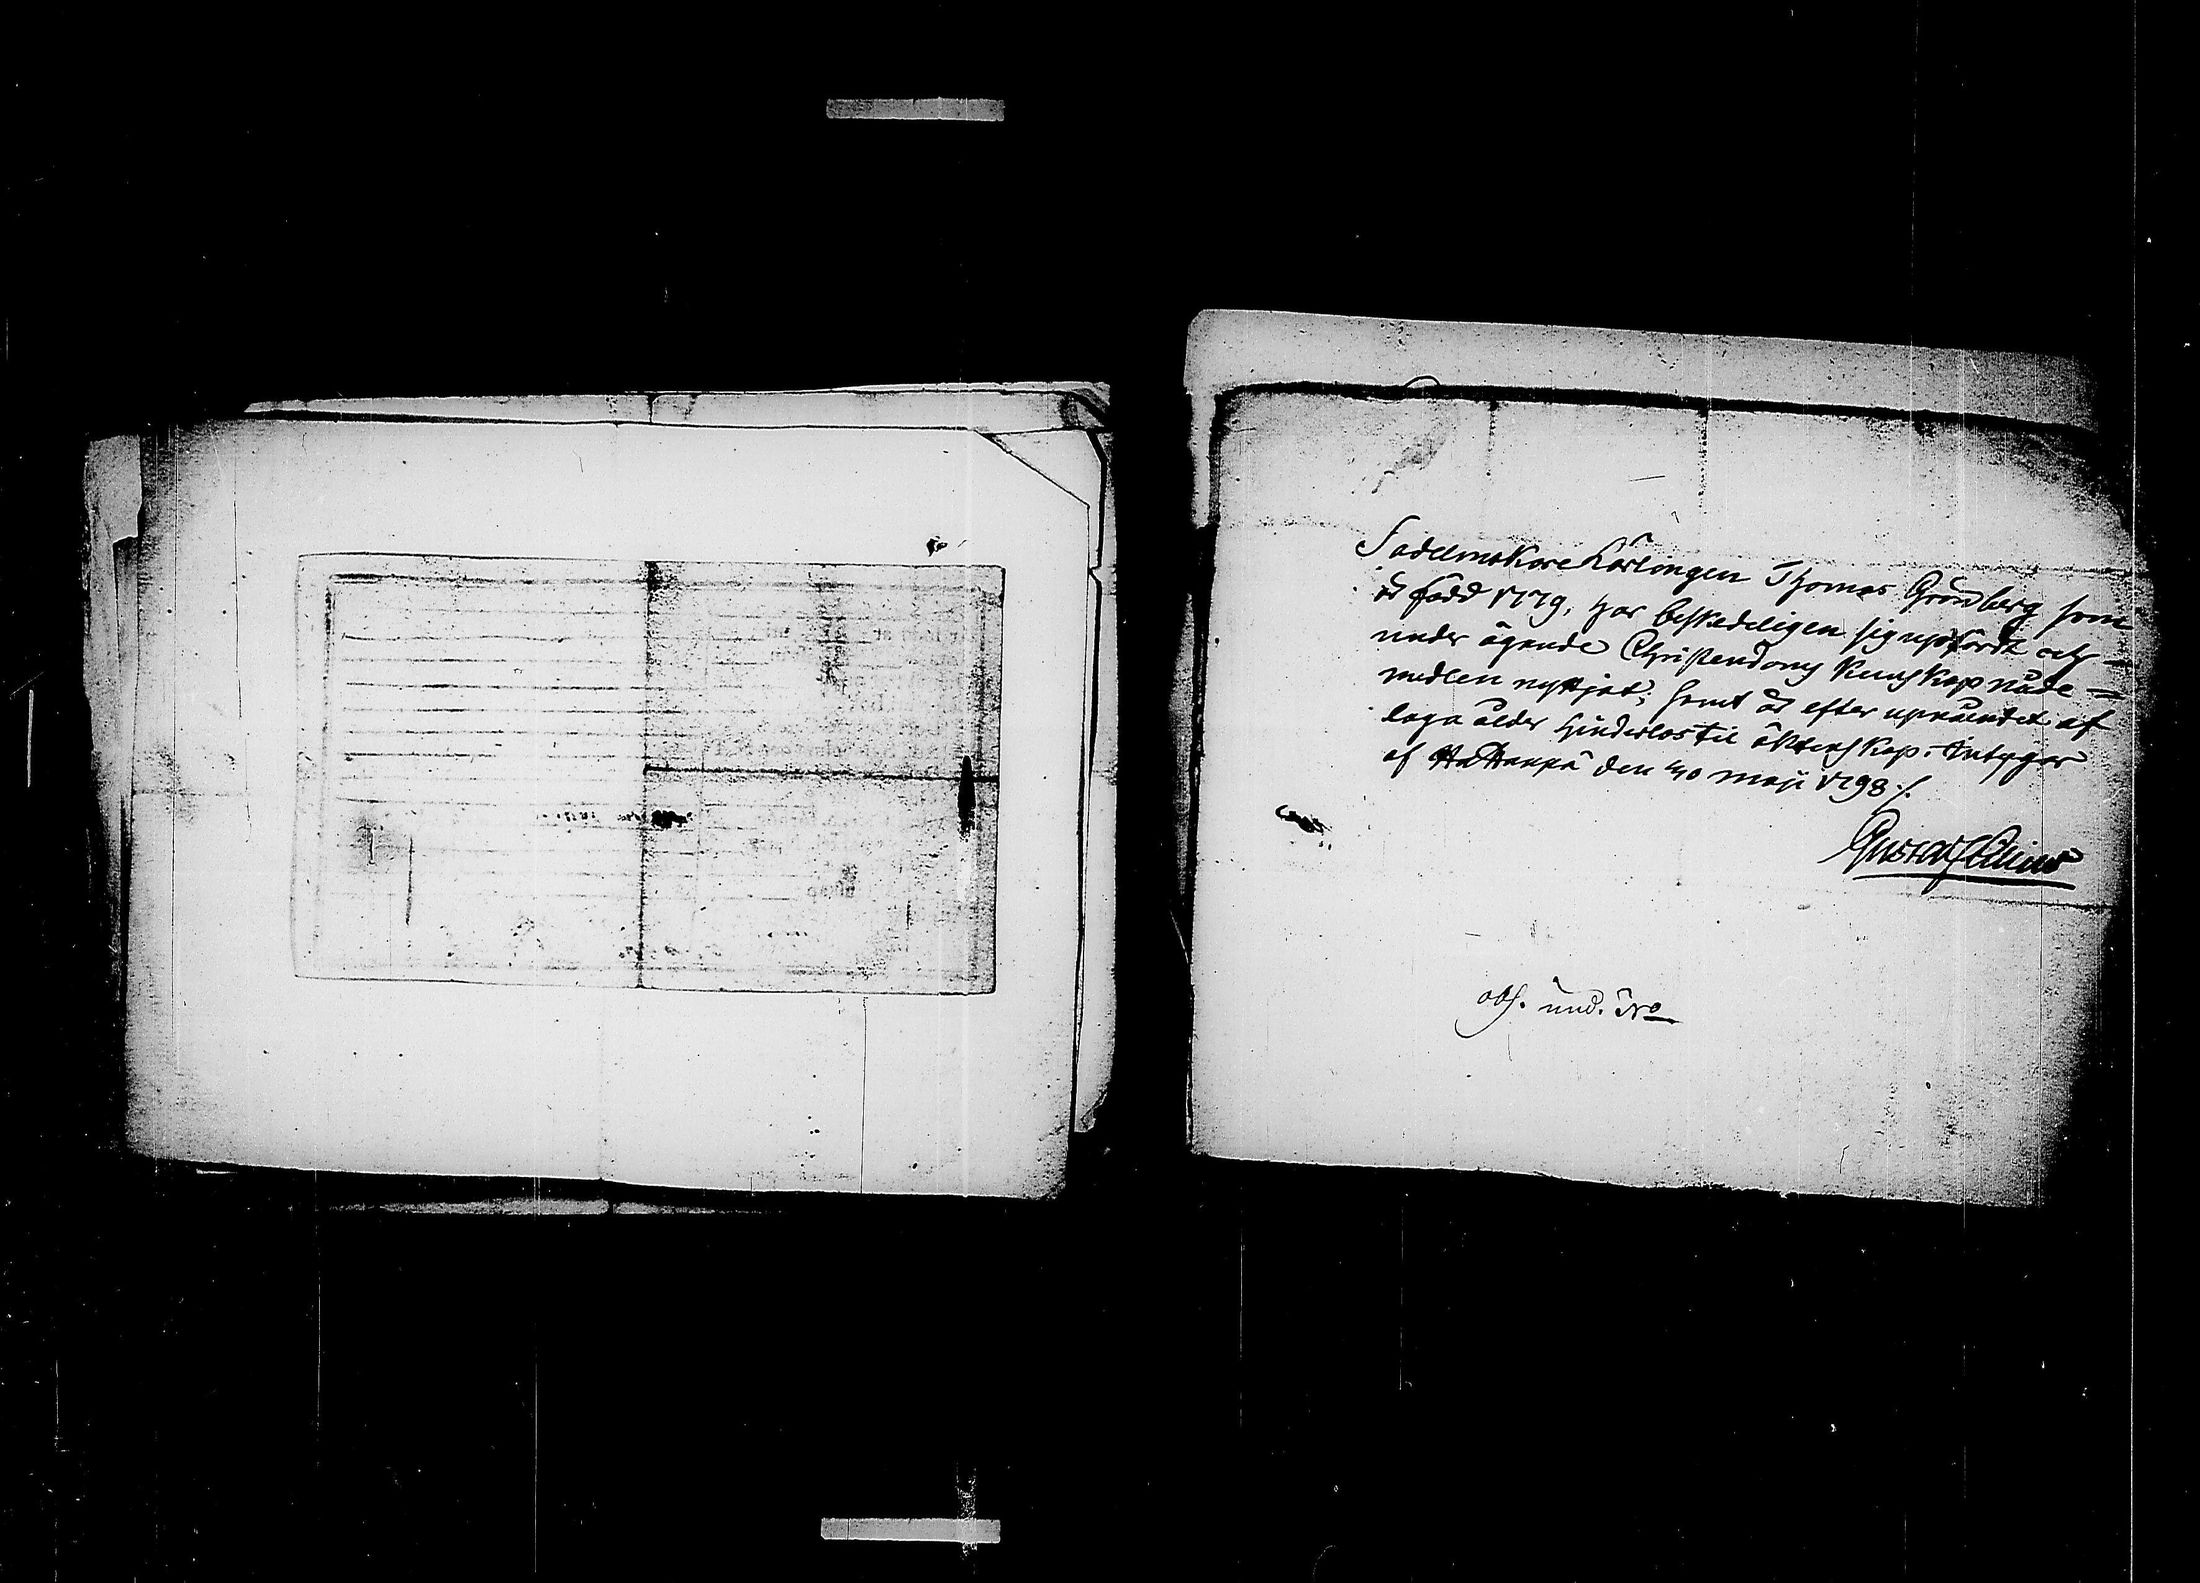 Sadelmakare Lärlingen Thomas Grönberg som
är född 1779, har beskedeligen sig upfördt och
under ägande Christendoms Kunskap nåde-
medlen nyttjat; samt är efter upnåendet af
laga ålder hinderlös til äktenskap. Intygar
af Hattanpä den 30 Maji 1798 ./.
Gustaf
obs. und. N:o